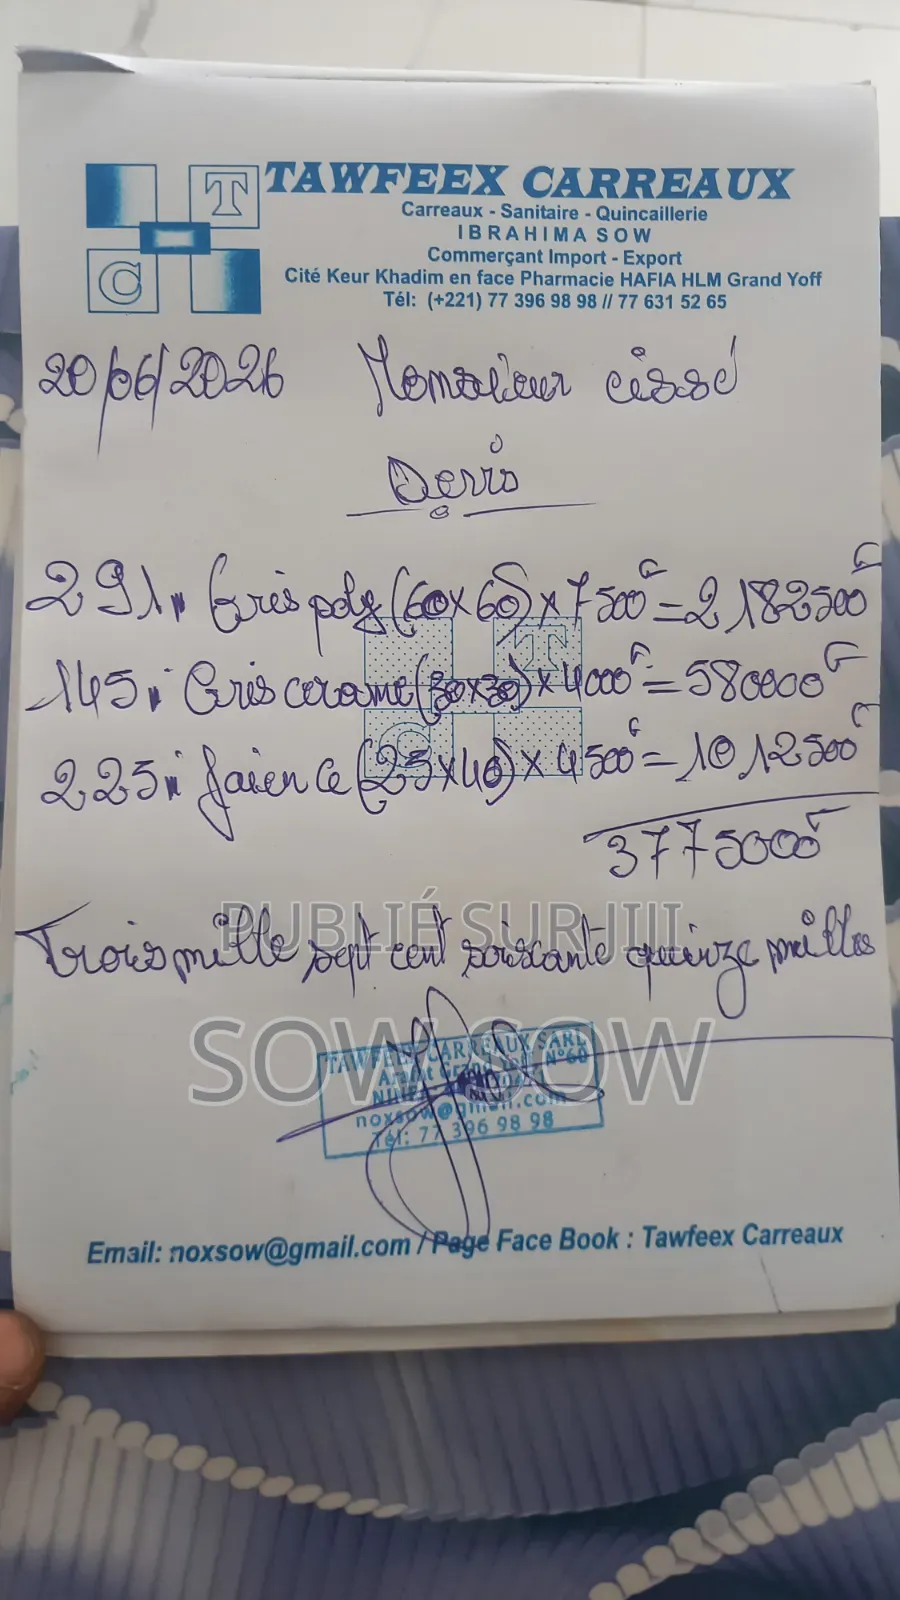 T
C
TAWFEEX CARREAUX
Carreaux - Sanitaire - Quincaillerie
IBRAHIMA SOW
Commerçant Import - Export
Cité Keur Khadim en face Pharmacie HAFIA HLM Grand Yoff
Tél: (+221) 77 396 98 98 // 77 631 52 65
20/06/2026 Monsieur cissé
Devis
291m Gris poly (60x60) x 7500F = 2182500F
145m Gris cerame (30x30) x 4000F = 580000F
225m faience (25x40) x 4500F = 1012500F
3775000F
Trois mille sept cent soixante quinze milles
PUBLIÉ SUR JIJI
SOW SOW
TAWFEEX CARREAUX SARL
N°60
noxsow@gmail.com
Tél: 77 396 98 98
Email: noxsow@gmail.com / Page Face Book : Tawfeex Carreaux